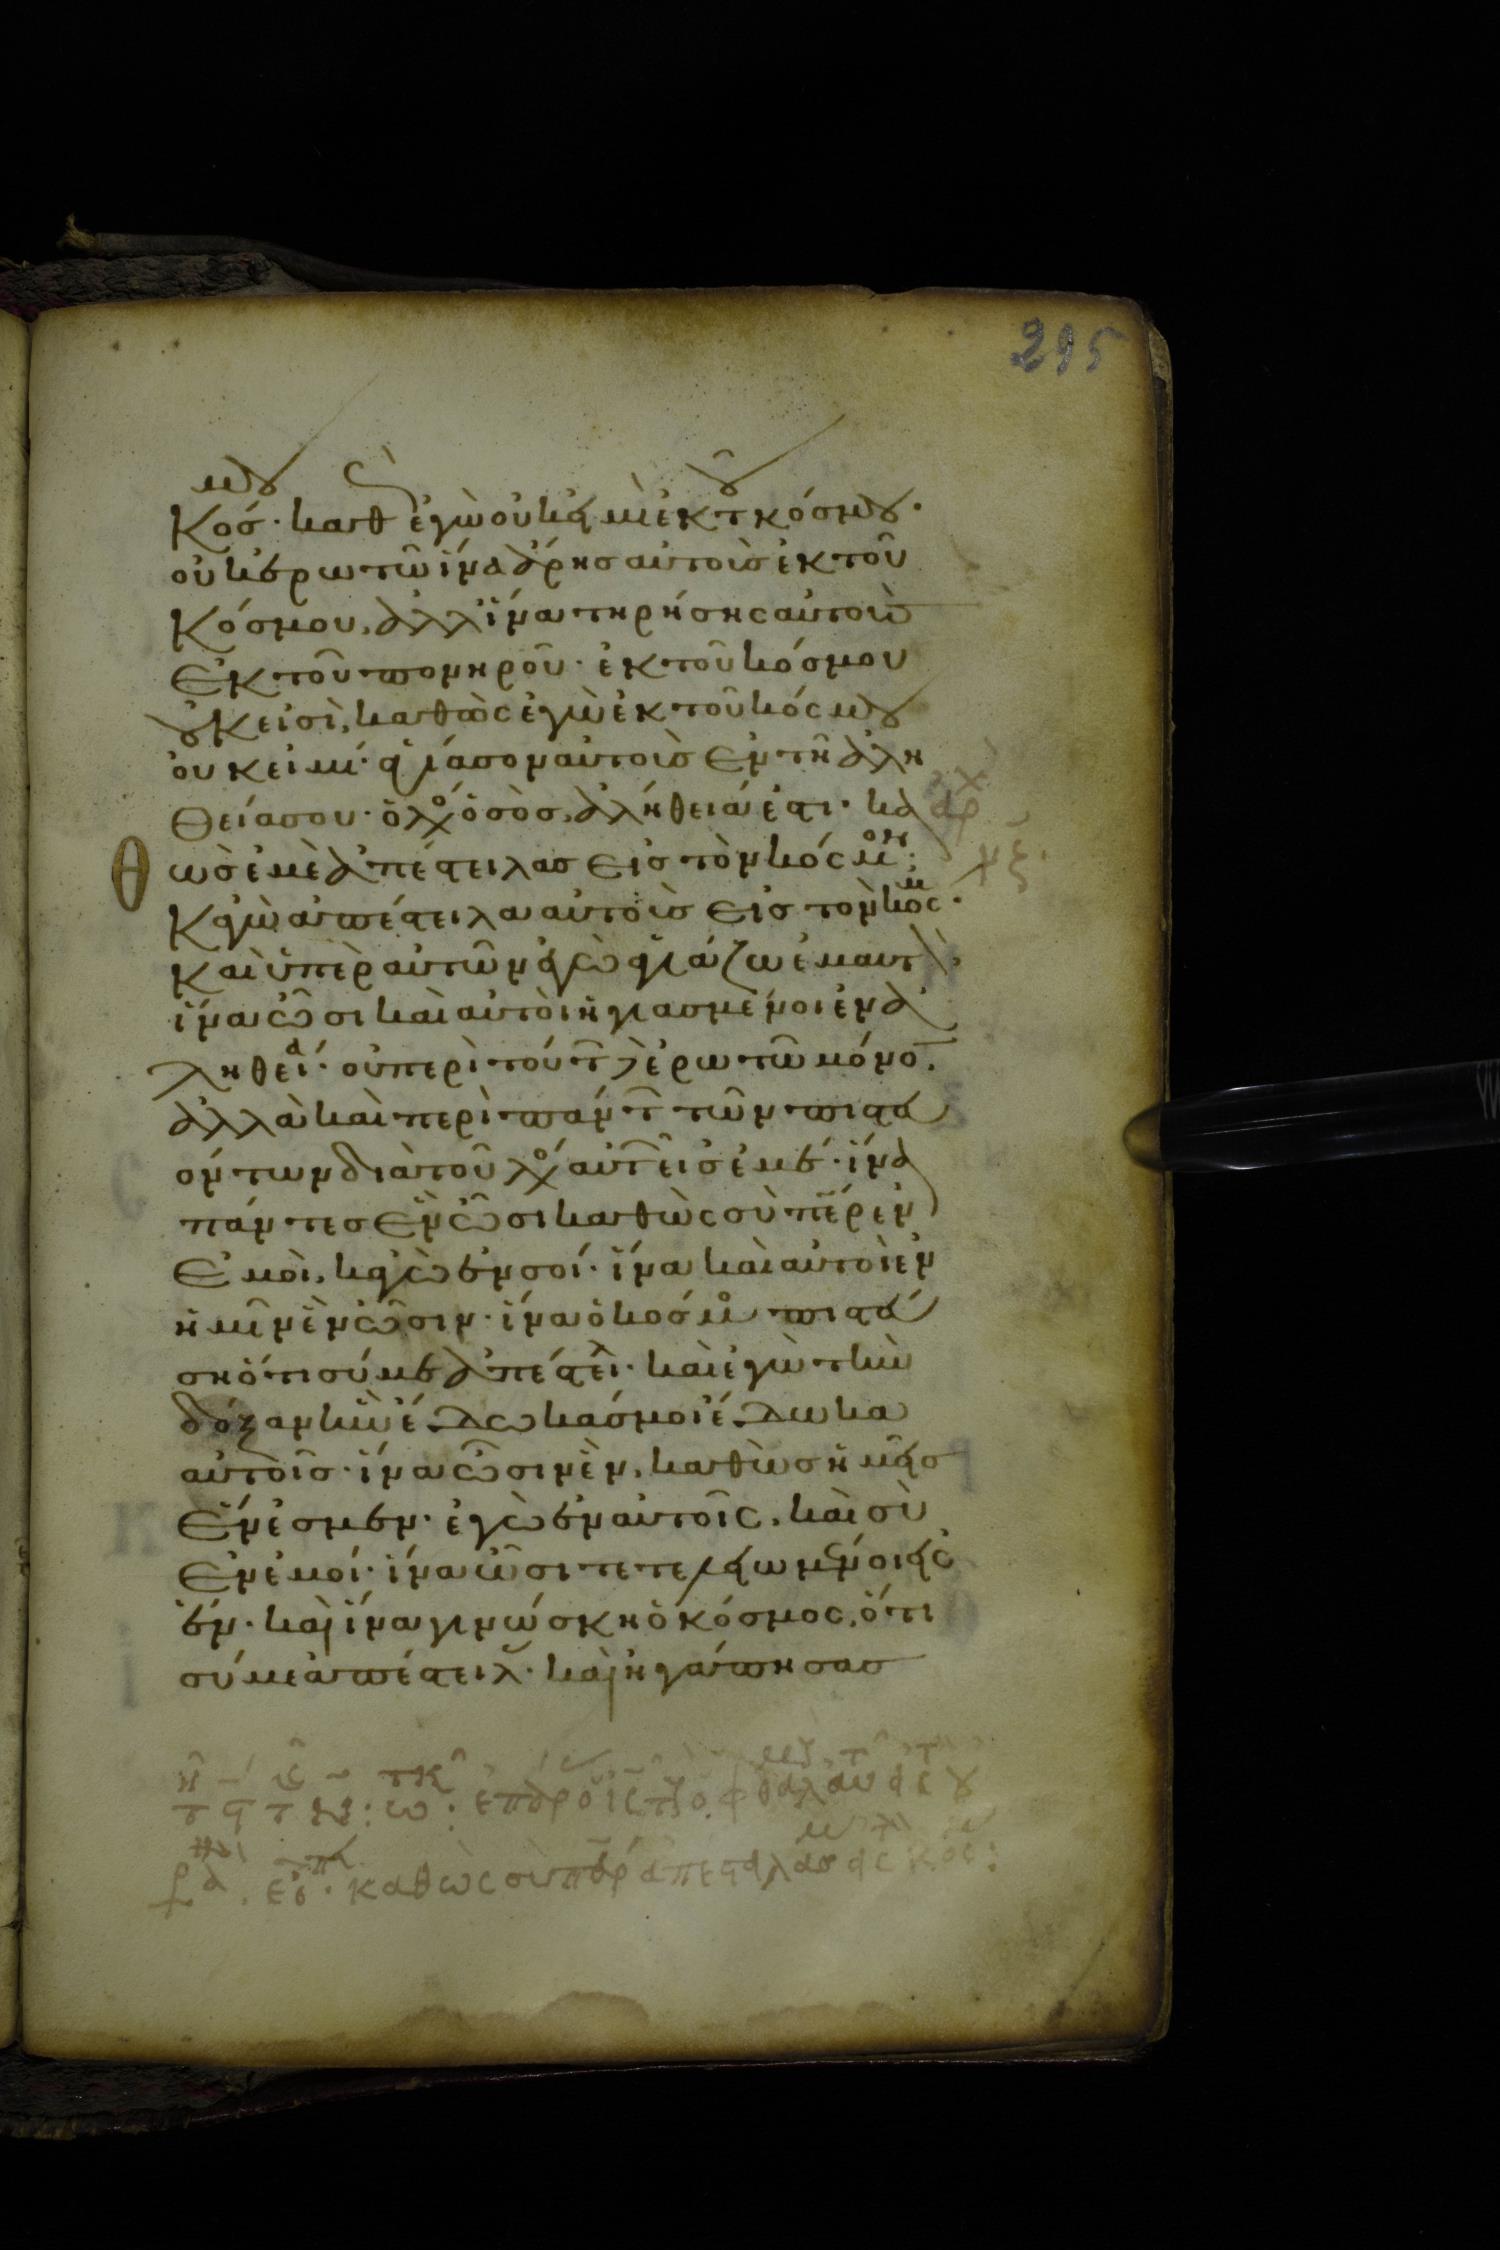 295
κόσμου· καθὼς ἐγὼ οὐκ εἰμὶ ἐκ τοῦ κόσμου·
οὐκ ἐρωτῶ ἵνα ἄρης αὐτοὺς ἐκ τοῦ
κόσμου, ἀλλ ἵνα τηρήσης αὐτοὺς
ἐκ τοῦ πονηροῦ· ἐκ τοῦ κόσμου
οὐκ εἰσὶ, καθὼς ἐγὼ ἐκ τοῦ κόσμου
οὐκ εἰμί· ἁγίασον αὐτοὺς ἐν τῆ ἀλη
θείᾳ σου· ὁ λόγος ὁ σὸς, ἀλήθειά ἐστι· καθ
ὼς ἐμὲ ἀπέστειλας εἰς τὸν κόσμον·
κἀγὼ ἀπέστειλα αὐτοὺς εἰς τὸν κόσμον·
καὶ ὑπὲρ αὐτῶν ἐγὼ ἁγιάζω ἐμαυτὸν,
ἵνα ὦσι καὶ αὐτοὶ ἡγιασμένοι ἐν ἀ
ληθείᾳ· οὐ περὶ τούτων δὲ ἐρωτῶ μόνον,
ἀλλὰ καὶ περὶ πάντων τῶν πιστευ
όντων διὰ τοῦ λόγου αὐτῶν εἰς ἐμέ· ἵνα
πάντες ἓν ὦσι καθὼς σὺ πάτερ ἐν
ἐμοὶ, κἀγὼ ἐν σοί· ἵνα καὶ αὐτοὶ ἐν
ἡμῖν ἓν ὦσιν· ἵνα ὁ κόσμος πιστεύ
ση ὅτι σύ με ἀπέστειλας· καὶ ἐγὼ τὴν
δόξαν ἣν ἔδωκάς μοι ἔδωκα
αὐτοῖς· ἵνα ὦσιν ἓν, καθὼς ἡμεῖς
ἕν ἐσμεν· ἐγὼ ἐν αὐτοῖς, καὶ σὺ
ἐν ἐμοί· ἵνα ὦσι τετελειωμένοι εἰς
ἕν· καὶ ἵνα γινώσκη ὁ κόσμος, ὅτι
σύ με ἀπέστειλας· καὶ ἠγάπησας